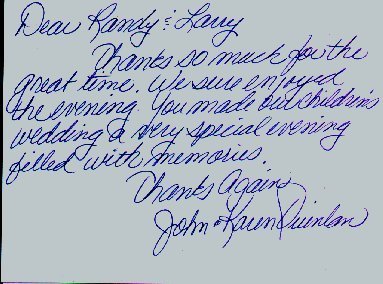 Dear Randy & Larry
Thanks so much for the
great time. We sure enjoyed
the evening. You made our children's
wedding a very special evening
filled with memories.
Thanks Again,
John & Karen Quinlan